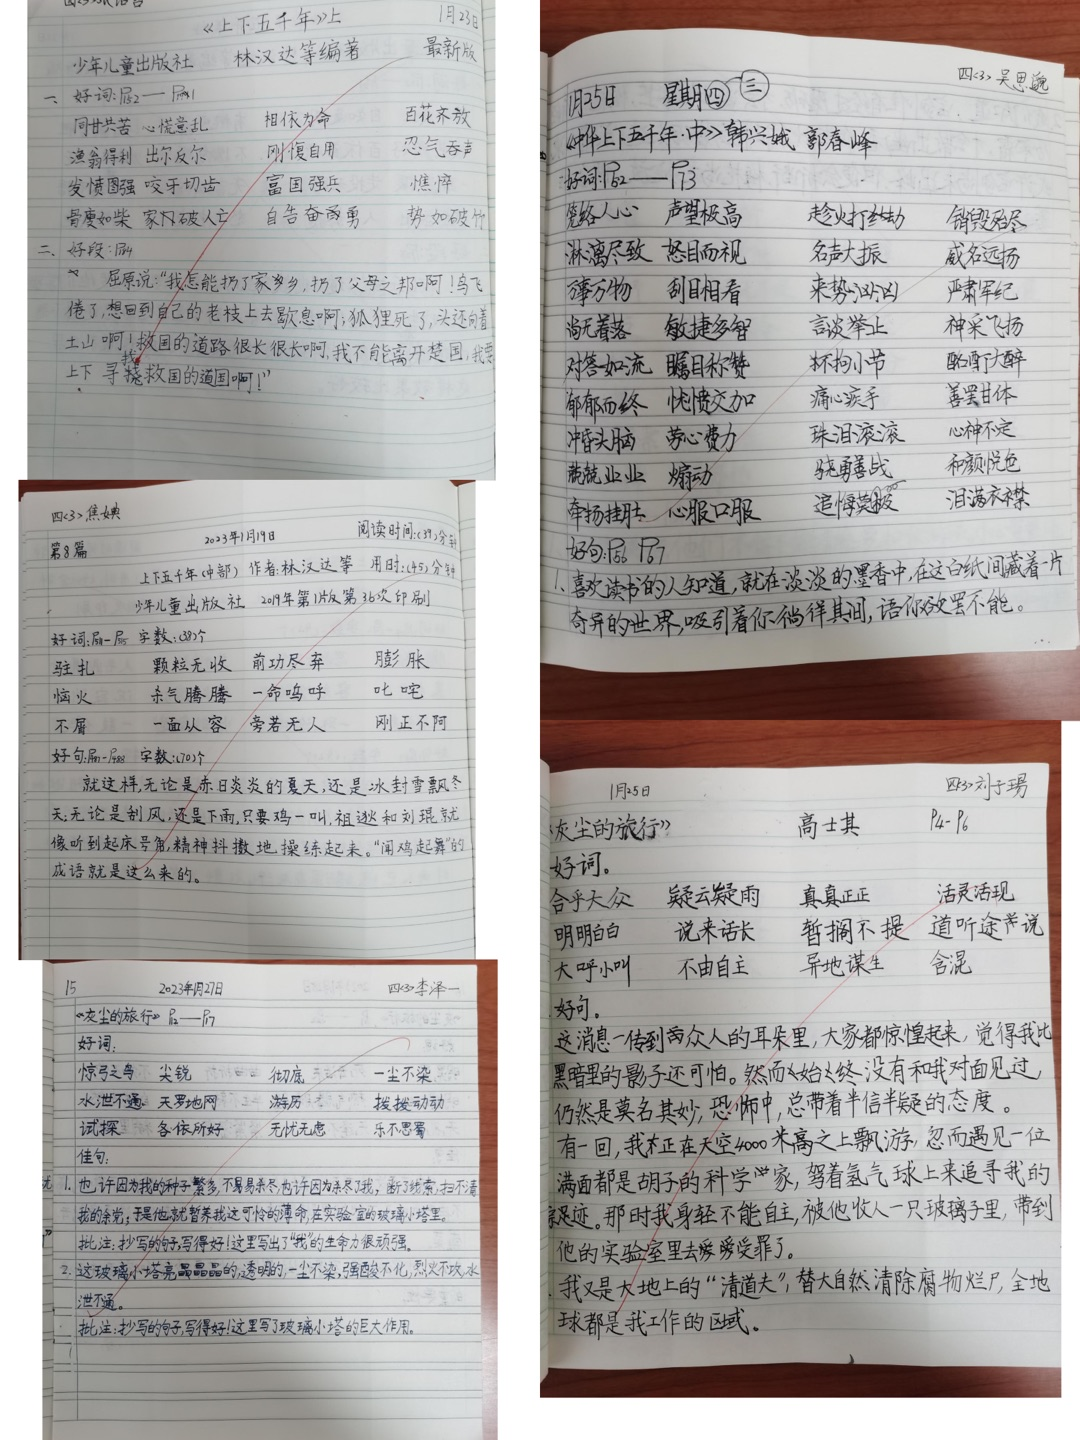 《上下五千年》上 1月23日
少年儿童出版社 林汉达等编著 最新版
一、好词:P52——P61
同甘共苦 心慌意乱 相依为命 百花齐放
渔翁得利 出尔反尔 刚愎自用 忍气吞声
发愤图强 咬牙切齿 富国强兵 憔悴
骨瘦如柴 家破人亡 自告奋勇 势如破竹
二、好段:P54
屈原说:“我怎能扔了家乡,扔了父母之邦啊!鸟飞
倦了,想回到自己的老枝上去歇息啊;狐狸死了,头还向着
土山啊!救国的道路很长很长啊,我不能离开楚国,我要
上下寻找救国的道国啊!”
四<3>焦姨
第8篇 2023年1月19日 阅读时间:(39)分钟
上下五千年(中部) 作者:林汉达等 用时:(45)分钟
少年儿童出版社 2019年第1版第36次印刷
好词: 字数:(38)个
驻扎 颗粒无收 前功尽弃 膨胀
恼火 杀气腾腾 一命呜呼 叱咤
不屑 一面从容 旁若无人 刚正不阿
好句: 字数:(70)个
就这样,无论是赤日炎炎的夏天,还是冰封雪飘冬
天;无论是刮风,还是下雨,只要鸡一叫,祖逖和刘琨就
像听到起床号角,精神抖擞地操练起来。“闻鸡起舞”的
成语就是这么来的。
15 2023年1月27日 四<3>李泽一
《灰尘的旅行》P12——P17
好词:
惊弓之鸟 尖锐 彻底 一尘不染
水泄不通 天罗地网 游历 拨拨动动
试探 各依所好 无忧无虑 乐不思蜀
佳句:
1.也许因为我的种子繁多,不易易杀尽,也许因为杀尽了我,断了线索,扫不清
我的余党;于是他就暂养我这可怜的薄命,在实验室的玻璃小塔里。
批注:抄写的句子,写得好!这里写出了“我”的生命力很顽强。
2.这玻璃小塔亮晶晶晶的,透明的,一尘不染,强酸不化,烈火不攻,水
泄不通。
批注:抄写的句子,写得好!这里写了玻璃小塔的巨大作用。
四<3>吴思
1月25日 星期四 三
《中华上下五千年·中》韩兴娥 郭春峰
好词:P62——P73
笼络人心 声望极高 趁火打劫 销毁殆尽
淋漓尽致 怒目而视 名声大振 威名远扬
万事万物 刮目相看 来势汹汹 严肃军纪
尚无着落 敏捷多智 言谈举止 神采飞扬
对答如流 瞩目称赞 不拘小节 酩酊大醉
郁郁而终 忧愤交加 痛心疾手 善罢甘体
冲昏头脑 劳心费力 珠泪滚滚 心神不定
兢兢业业 煽动 骁勇善战 和颜悦色
牵扬挂肚 心服口服 追悔莫及 泪满衣襟
好句:P66 P67
1、喜欢读书的人知道,就在淡淡的墨香中,在这白纸间藏着一片
奇异的世界,吸引着你徜徉其间,语你欲罢不能。
1月25日 四<3>刘子玚
《灰尘的旅行》 高士其 P4-P6
好词。
合乎大众 疑云疑雨 真真正正 活灵活现
明明白白 说来话长 暂搁不提 道听途说
大呼小叫 不由自主 异地谋生 含混
好句。
这消息一传到两众人的耳朵里,大家都惊惶起来,觉得我比
黑暗里的影子还可怕。然而始终没有和我对面见过,
仍然是莫名其妙,恐怖中,总带着半信半疑的态度。
有一回,我正在天空4000米高之上飘游,忽而遇见一位
满面都是胡子的科学家,驾着氢气球上来追寻我的
踪足迹。那时我身轻不能自主,被他收入一只玻璃子里,带到
他的实验室里去受罪了。
我又是大地上的“清道夫”,替大自然清除腐物烂尸,全地
球都是我工作的区域。